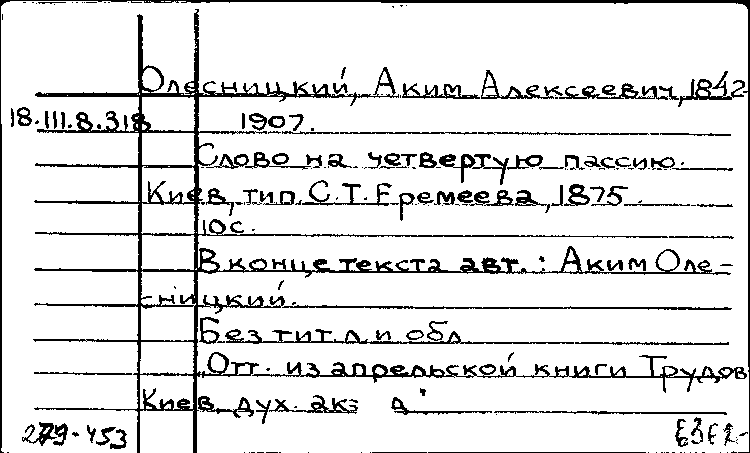 Олесницкий, Аким Алексеевич, 1842-
18.III.8.318 1907.
Слово на четвертую пассию.
Киев, тип. С.Т. Еремеева, 1875.
10 с.
В конце текста авт.: Аким Оле-
сницкий.
Без тит. л. и обл.
"Отт. из апрельской книги Трудов
Киев. дух. ак
279-453